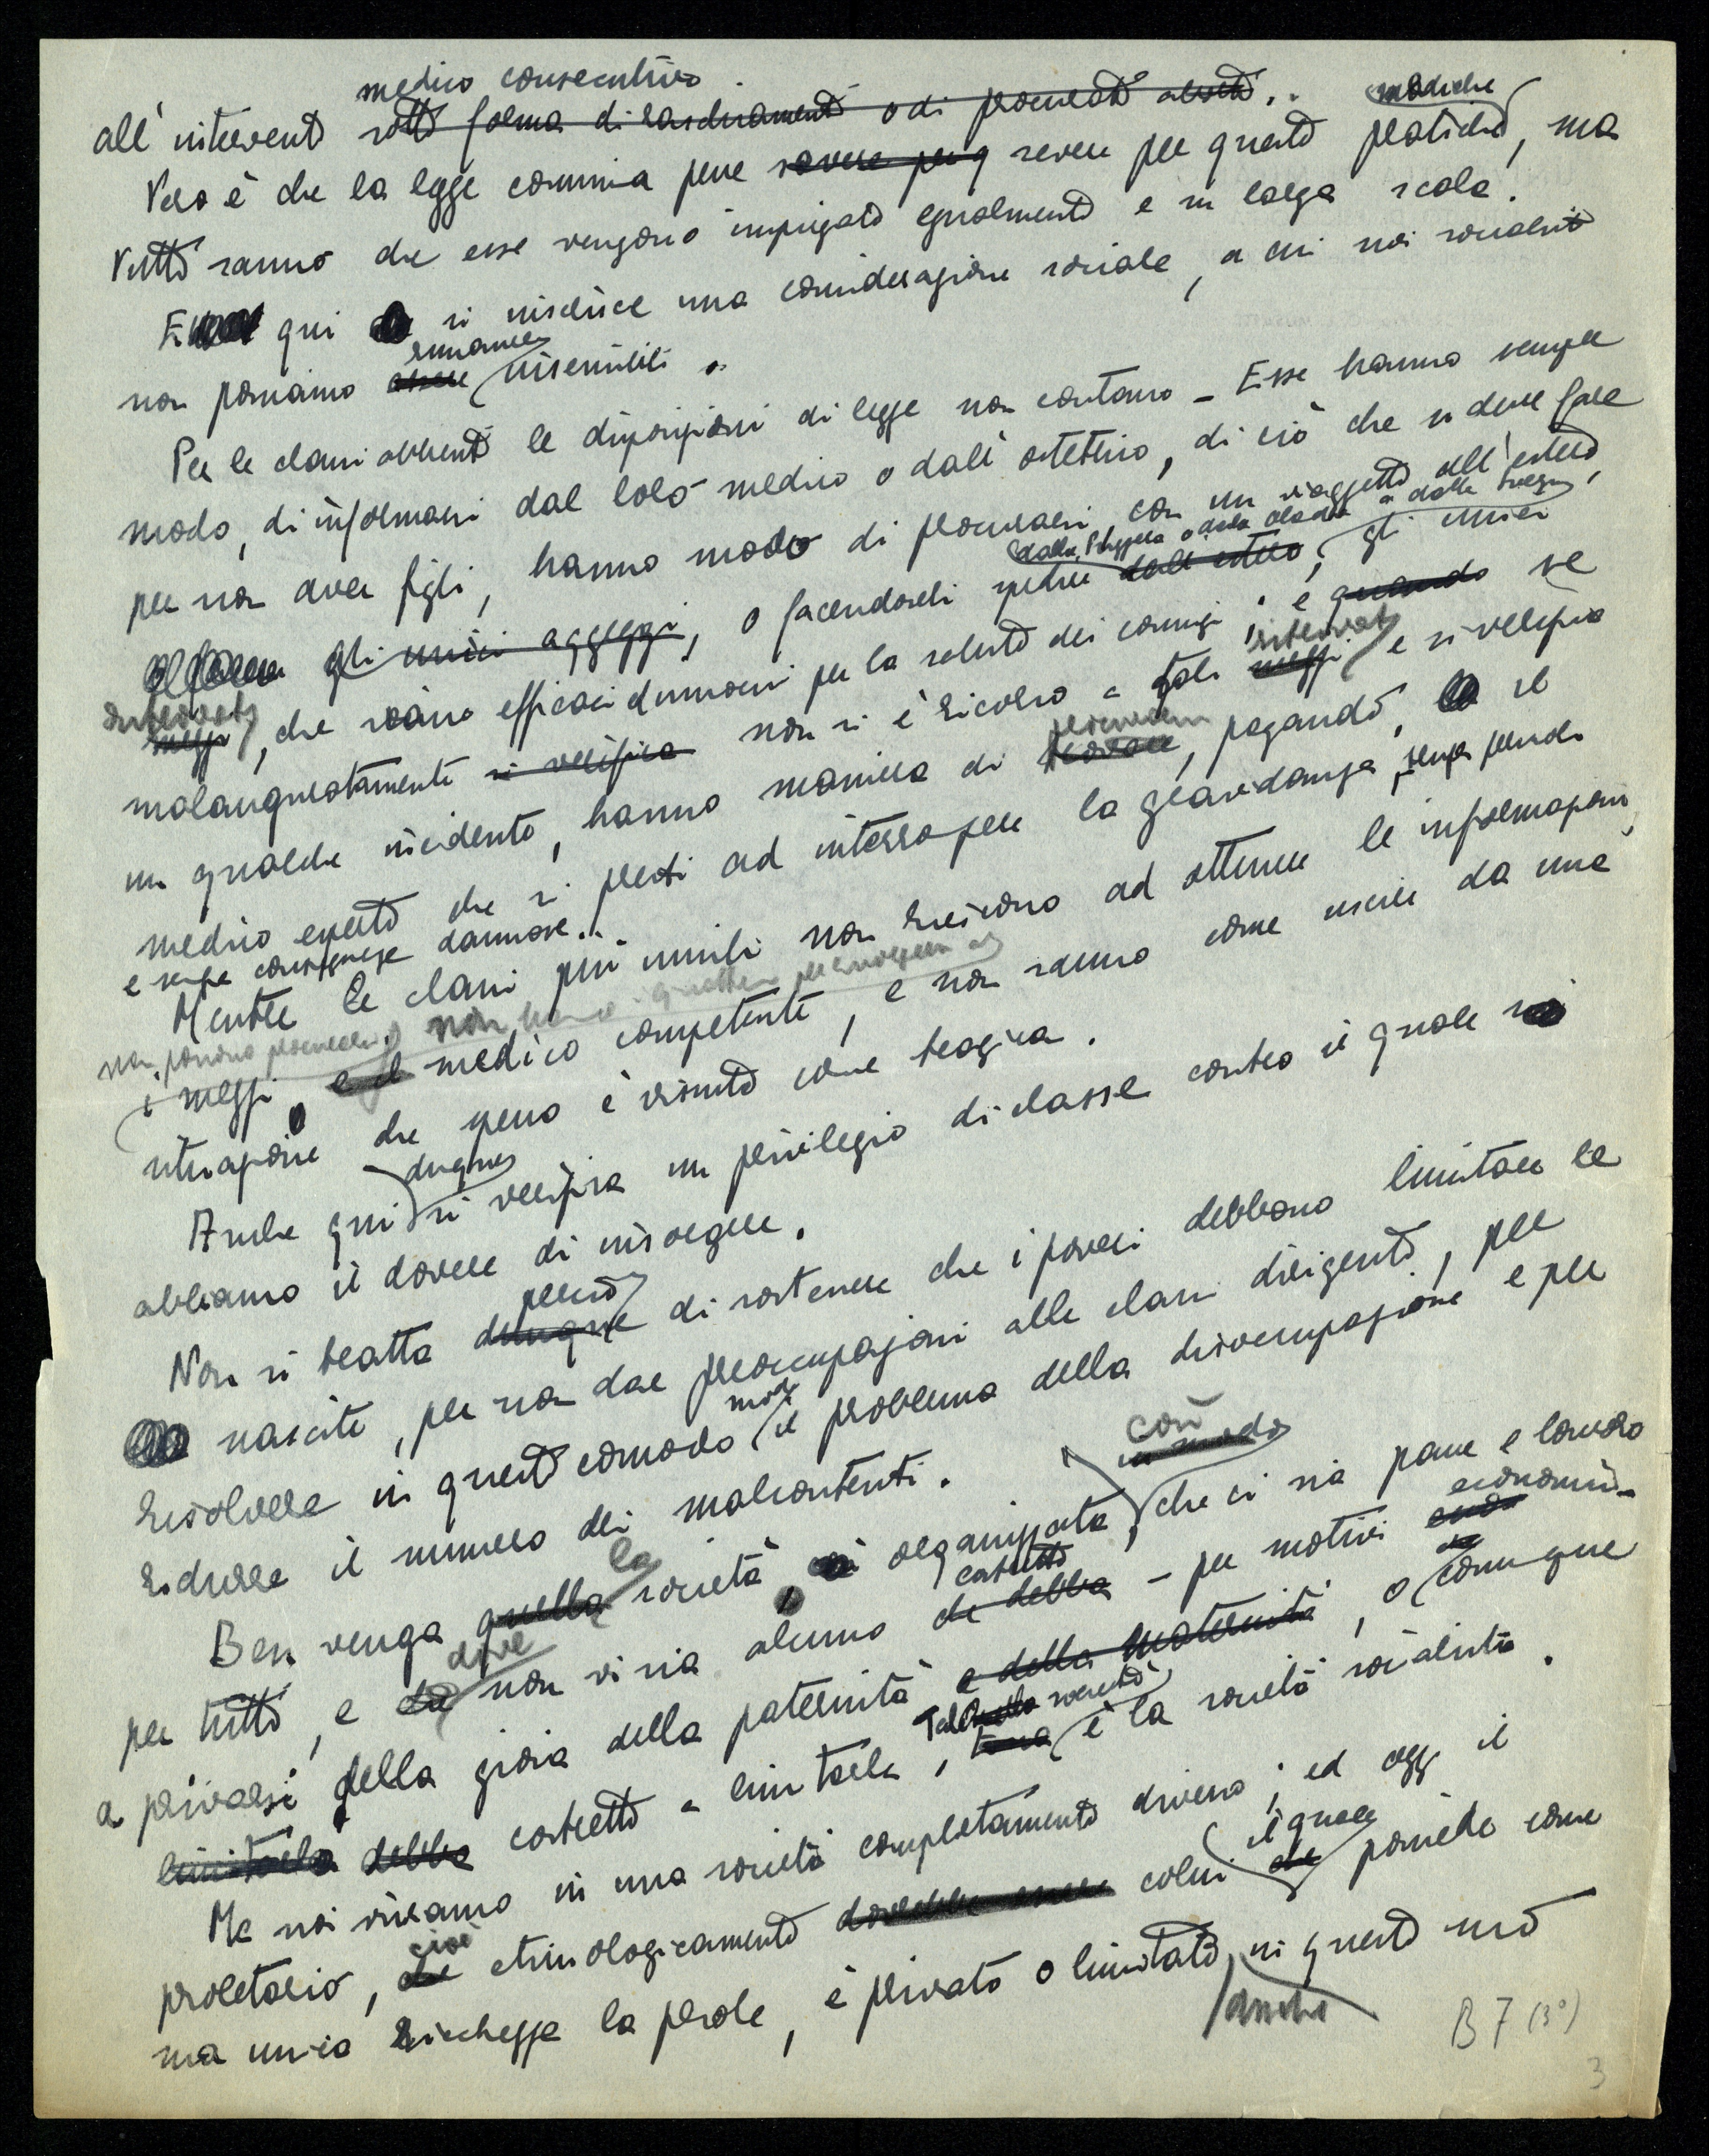 medico consecutivo
all'intervento sotto forma di raschiamenti o di procurati aborti..
mediche
Vero è che la legge commina pene severe per q severe per queste pratiche, ma
tutti sanno che esse vengono impiegate egualmente e in larga scala.
E qui si inserisce una considerazione sociale, a cui noi socialisti
rimanere
non possiamo essere insensibili.
Per le classi abbienti le disposizioni di legge non contano - Esse hanno sempre
modo, di informarsi dal loro medico o dall'ostetrico, di ciò che si deve fare
per non aver figli, hanno modo di procurarsi con un viaggetto all'estero,
dalla Svizzera o dalla Olanda o dalla Svezia
gli unici aggeggi, o facendoseli spedire dall'estero, gli unici
mezzi, che siano efficaci e innocui per la salute dei coniugi; e quando se
malauguratamente si verifica non si è ricorso a tali mezzi e si verifica
procurarsi
un qualche incidente, hanno maniera di trovare, pagando, il
medico esperto che si presti ad interrompere la gravidanza, senza pericolo
e senza conseguenze dannose..
Mentre le classi più umili non riescono ad ottenere le informazioni,
non possono procurarsi non hanno i quattrini per rivolgersi al
i mezzi e il medico competente, e non sanno come uscire da una
situazione che spesso è vissuta come tragica.
dunque
Anche qui si verifica un privilegio di classe contro il quale noi
abbiamo il dovere di insorgere.
perciò
Non si tratta dunque di sostenere che i poveri debbano limitare le
nascite, per non dar preoccupazioni alle classi dirigenti, per
modo
risolvere in questo comodo il problema della disoccupazione e per
ridurre il numero dei malcontenti.
così
in modo
la
Ben venga quella società, organizzata, che ci sia pane e lavoro
dove costretto economici-
per tutti, e da non vi sia alcuno che debba - per motivi
a privarsi della gioia della paternità e della maternità, o comunque
Tale società
limitarla debba costretto a limitarla, è la società socialista.
Ma noi viviamo in una società completamente diversa; ed oggi il
cioè il quale
proletario, che etimologicamente dovrebbe essere colui che possiede come
sua unica ricchezza la prole, è privato o limitato, in questo suo
anche
B 7 (3°)
3